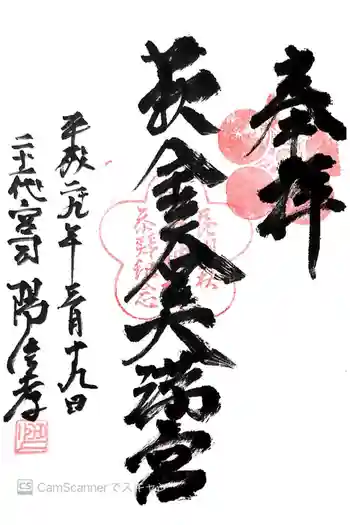 奉拝
萩金谷天満宮
平成二十九年三月十九日
二十一代宮司
陽信孝
参拝記念
CamScannerでスキャ